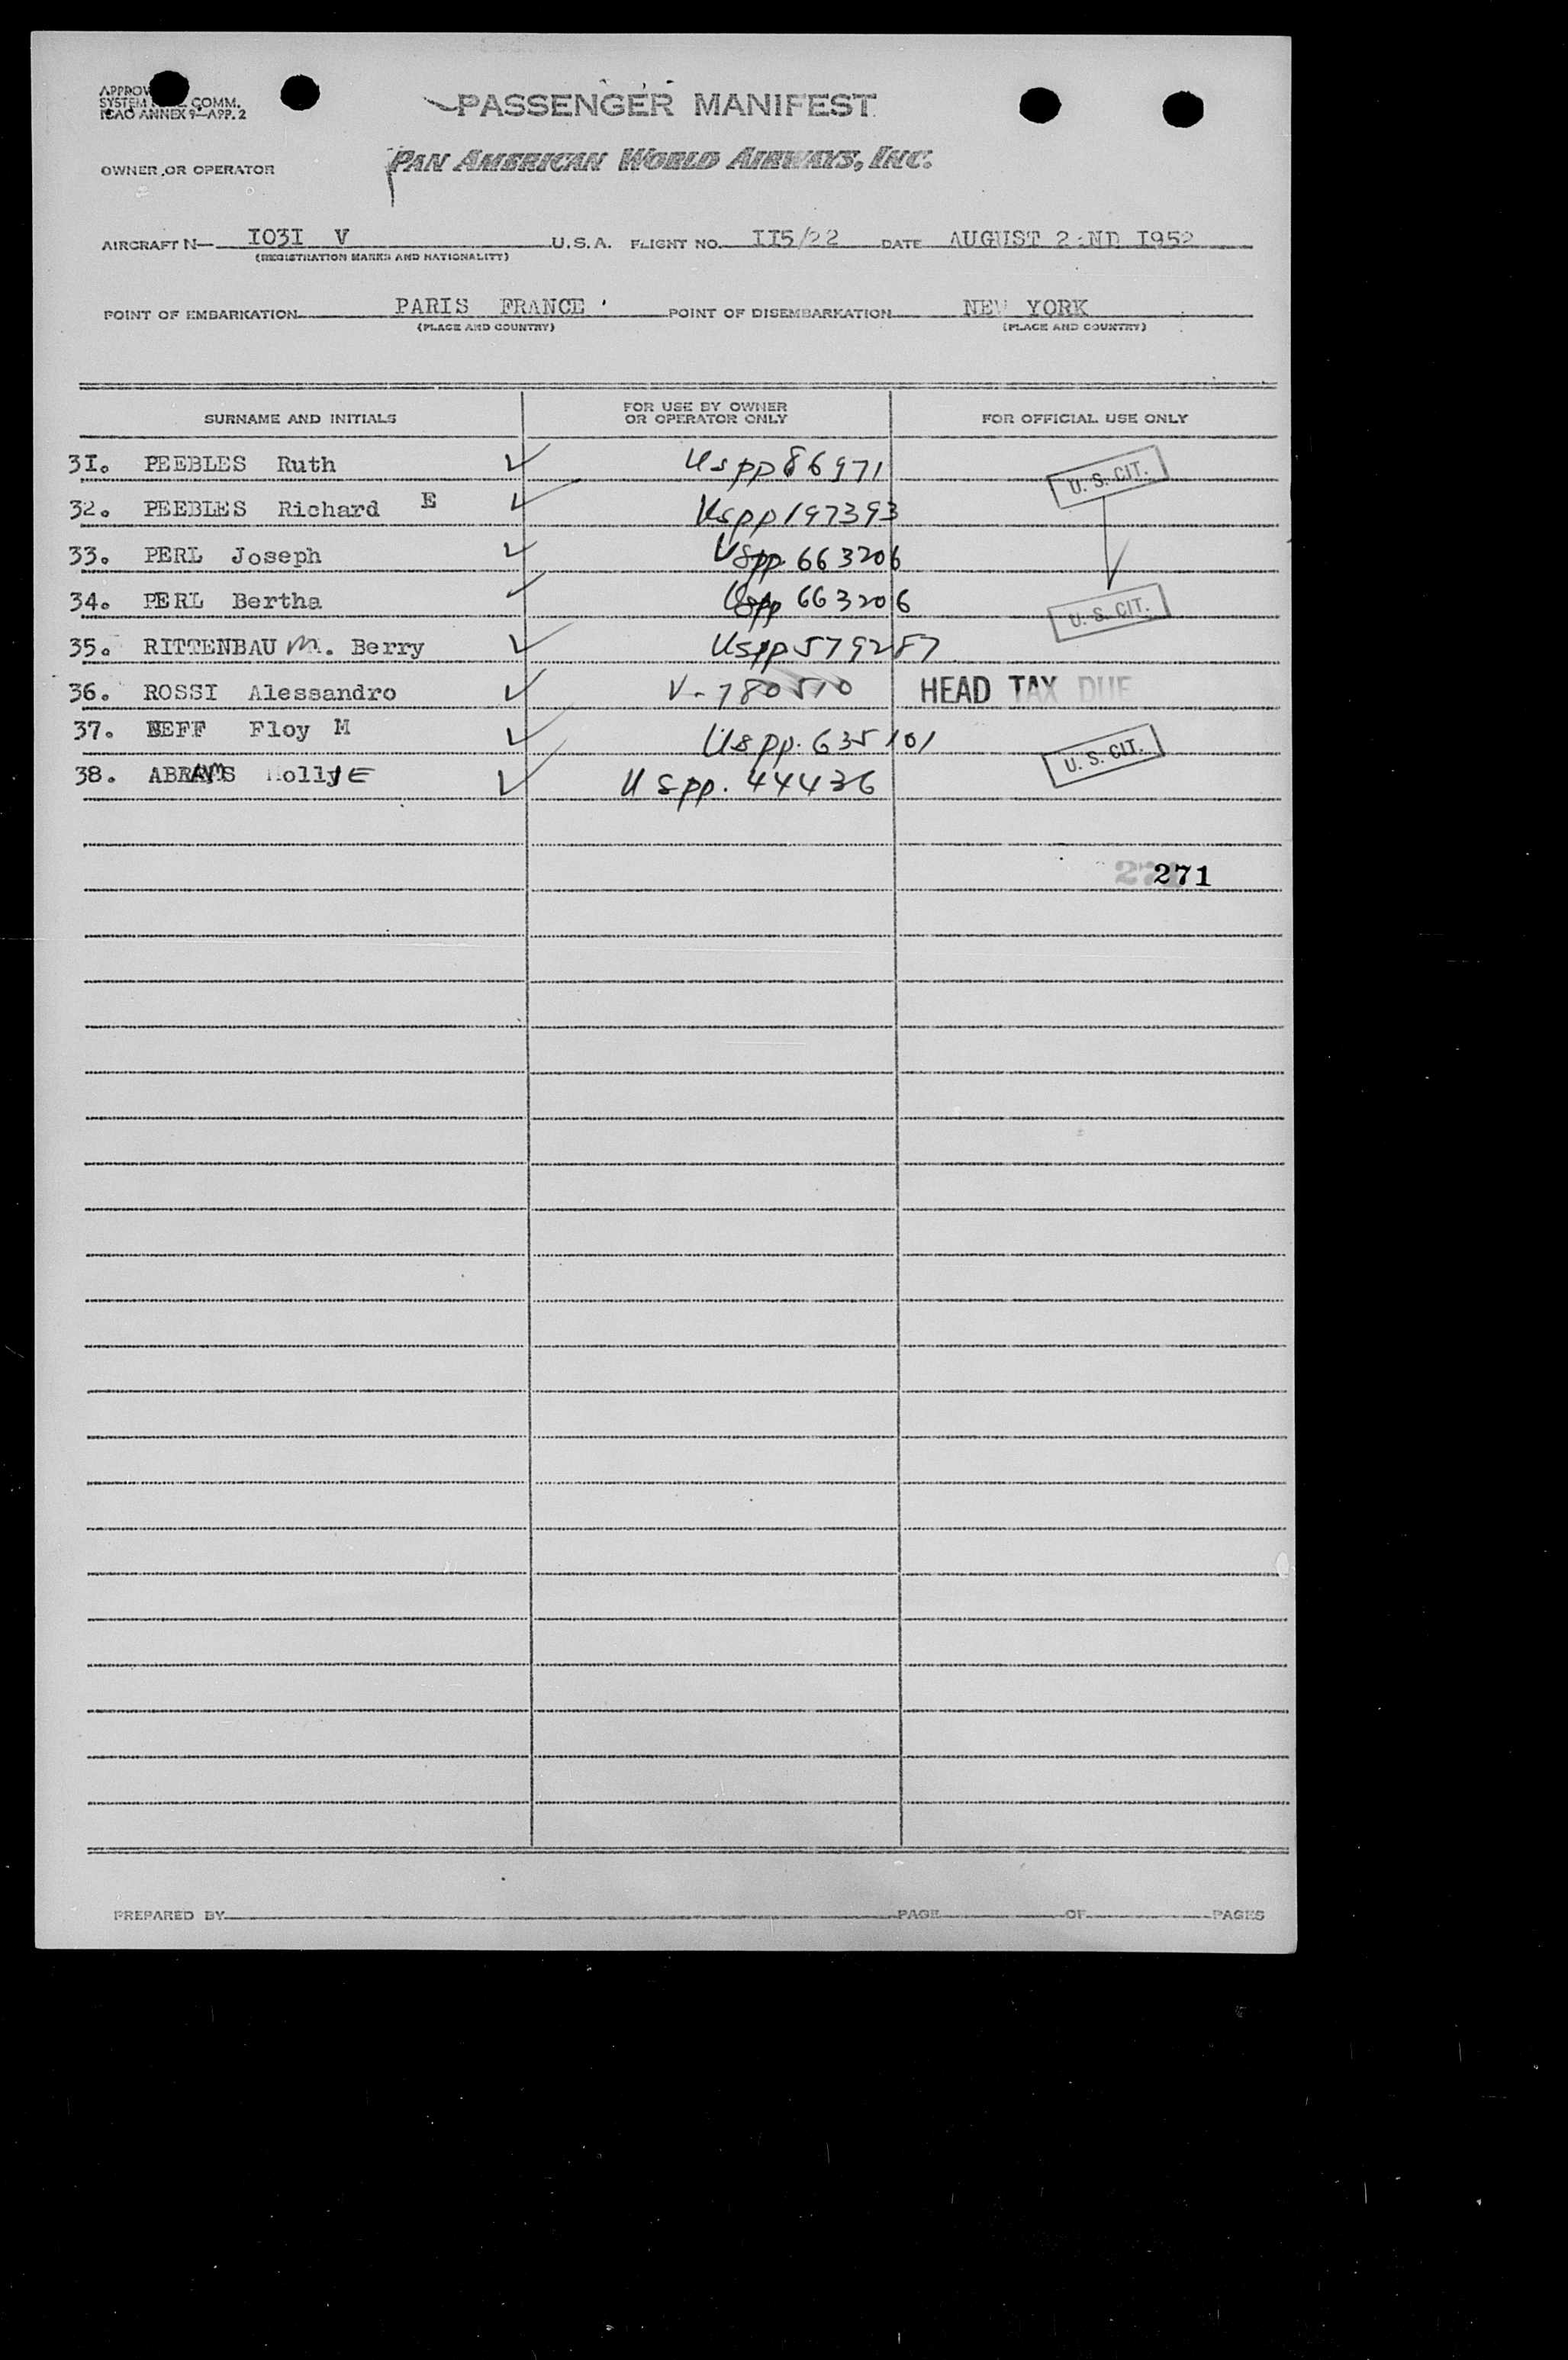 PASSENGER MANIFEST
SYSTEM COMM.
ICAO ANNEX 9—APP. 2
OWNER OR OPERATOR PAN AMERICAN WORLD AIRWAYS, INC.
AIRCRAFT N— I03I V U.S.A. FLIGHT NO. II5/22 DATE AUGUST 22ND I952
(REGISTRATION MARKS AND NATIONALITY)
POINT OF EMBARKATION PARIS FRANCE POINT OF DISEMBARKATION NEW YORK
(PLACE AND COUNTRY) (PLACE AND COUNTRY)
SURNAME AND INITIALS FOR USE BY OWNER OR OPERATOR ONLY FOR OFFICIAL USE ONLY
3I. PEEBLES Ruth ✓ Uspp 86971 U. S. CIT.
32. PEEBLES Richard E ✓ Uspp 197393
33. PERL Joseph ✓ USpp. 663206
34. PERL Bertha ✓ Uspp 663206 U. S. CIT.
35. RITTENBAUM. Berry ✓ Uspp 579287
36. ROSSI Alessandro ✓ V-780510 HEAD TAX DUE
37. NEFF Floy M ✓ US pp. 635101 U. S. CIT.
38. ABRAMS MollyE ✓ U Spp. 44436
271
PREPARED BY PAGE OF PAGES